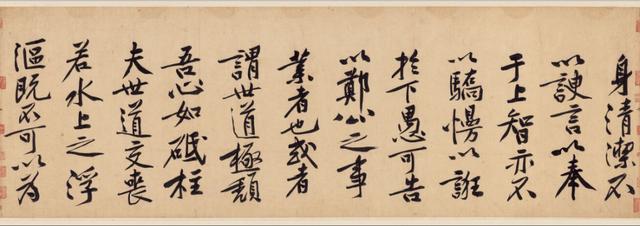 身清潔不
以諛言以奉
于上智亦不
以驕慢以誑
於下愚可告
以鄭公之事
業者也或者
謂世道極頹
吾心如砥柱
夫世道交喪
若水上之浮
漚既不可以為